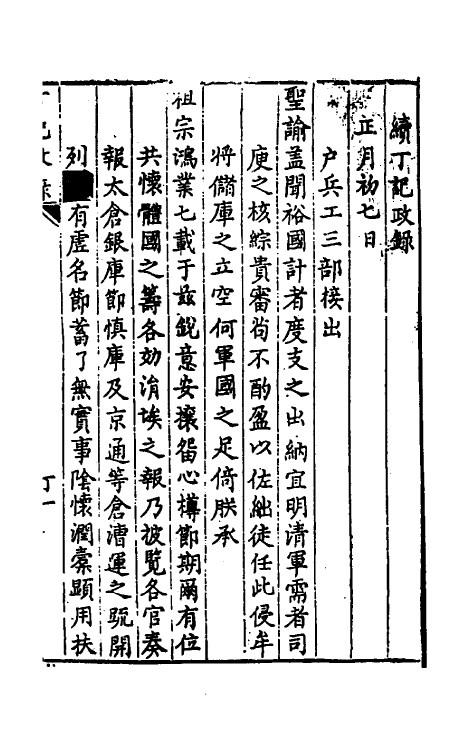 續丁記政錄
正月初七日
户兵工三部接出
聖諭盖聞裕國計者度支之出納宜明清軍需者司
庾之核綜貴審茍不酌盈以佐絀徒任此侵牟
將儲庫之立空何軍國之足倚朕承
祖宗鴻業七載于兹銳意安攘㽞心樽節期爾有位
共懷體國之籌各効涓埃之報乃披覧各官奏
報太倉銀庫節慎庫及京通等倉漕運之䟽開
列 有虛名節蓄了無實事陰懷潤橐顯用扶